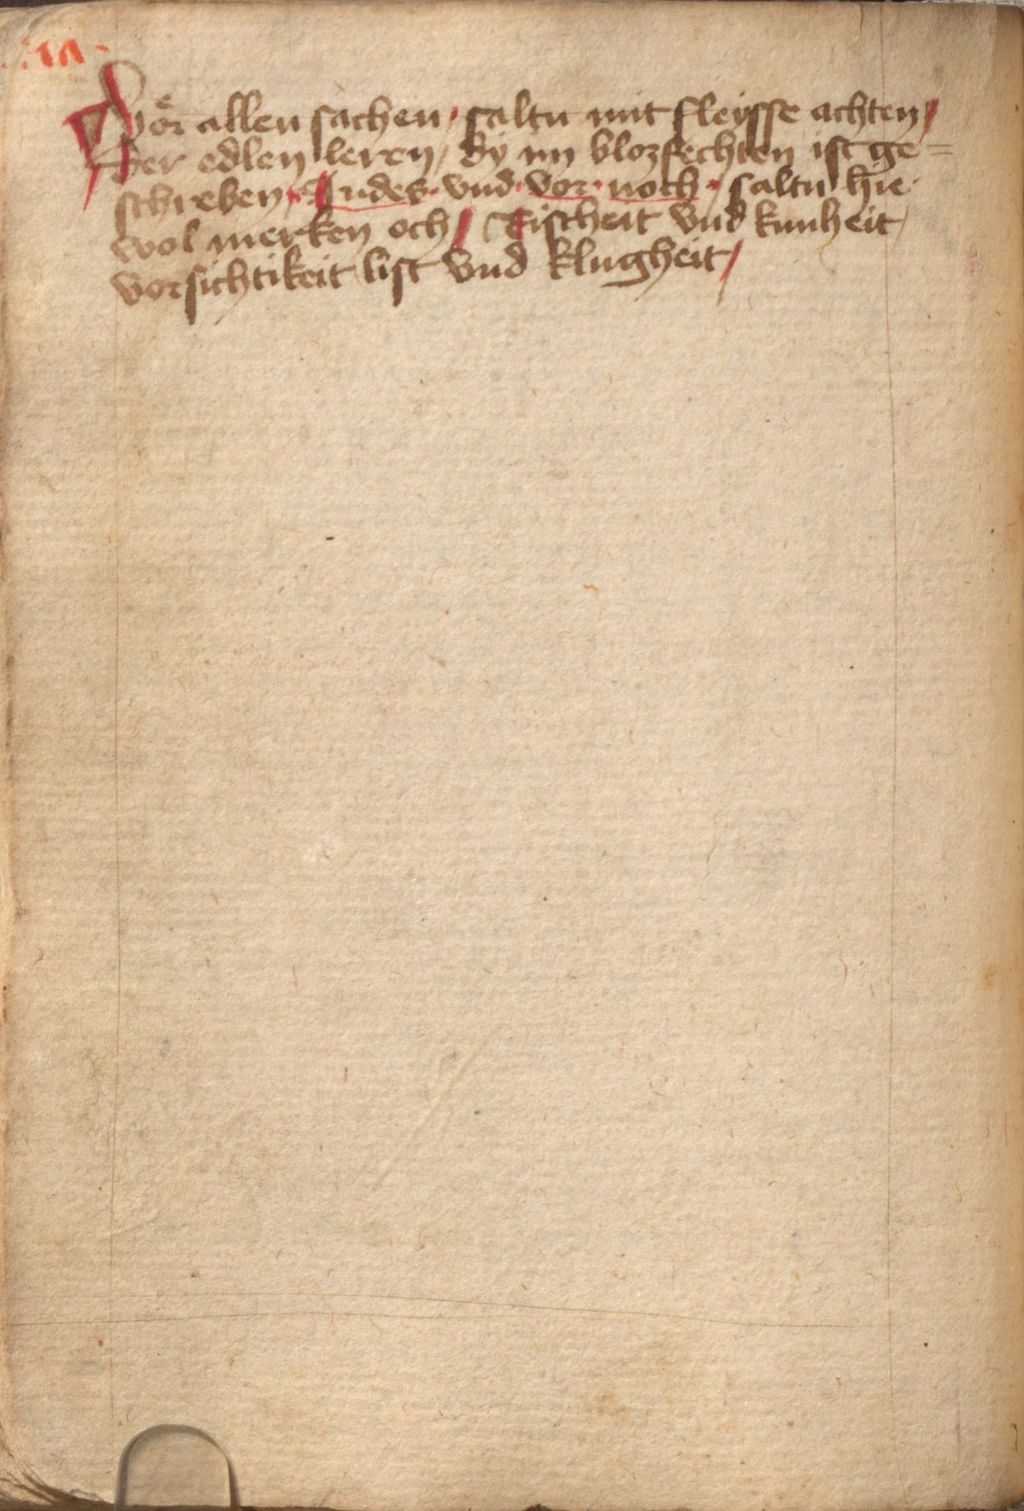 Voͤr allen sachen · saltu mit fleysse achten /
Der edlen leren / dy im blozfechten ist ge=
schreben / Indes · vnd · vor · noch · saltu hie ·
wol merken och / Rischeit vnd kunheit /
vorsichtikeit list vnd klugheit /